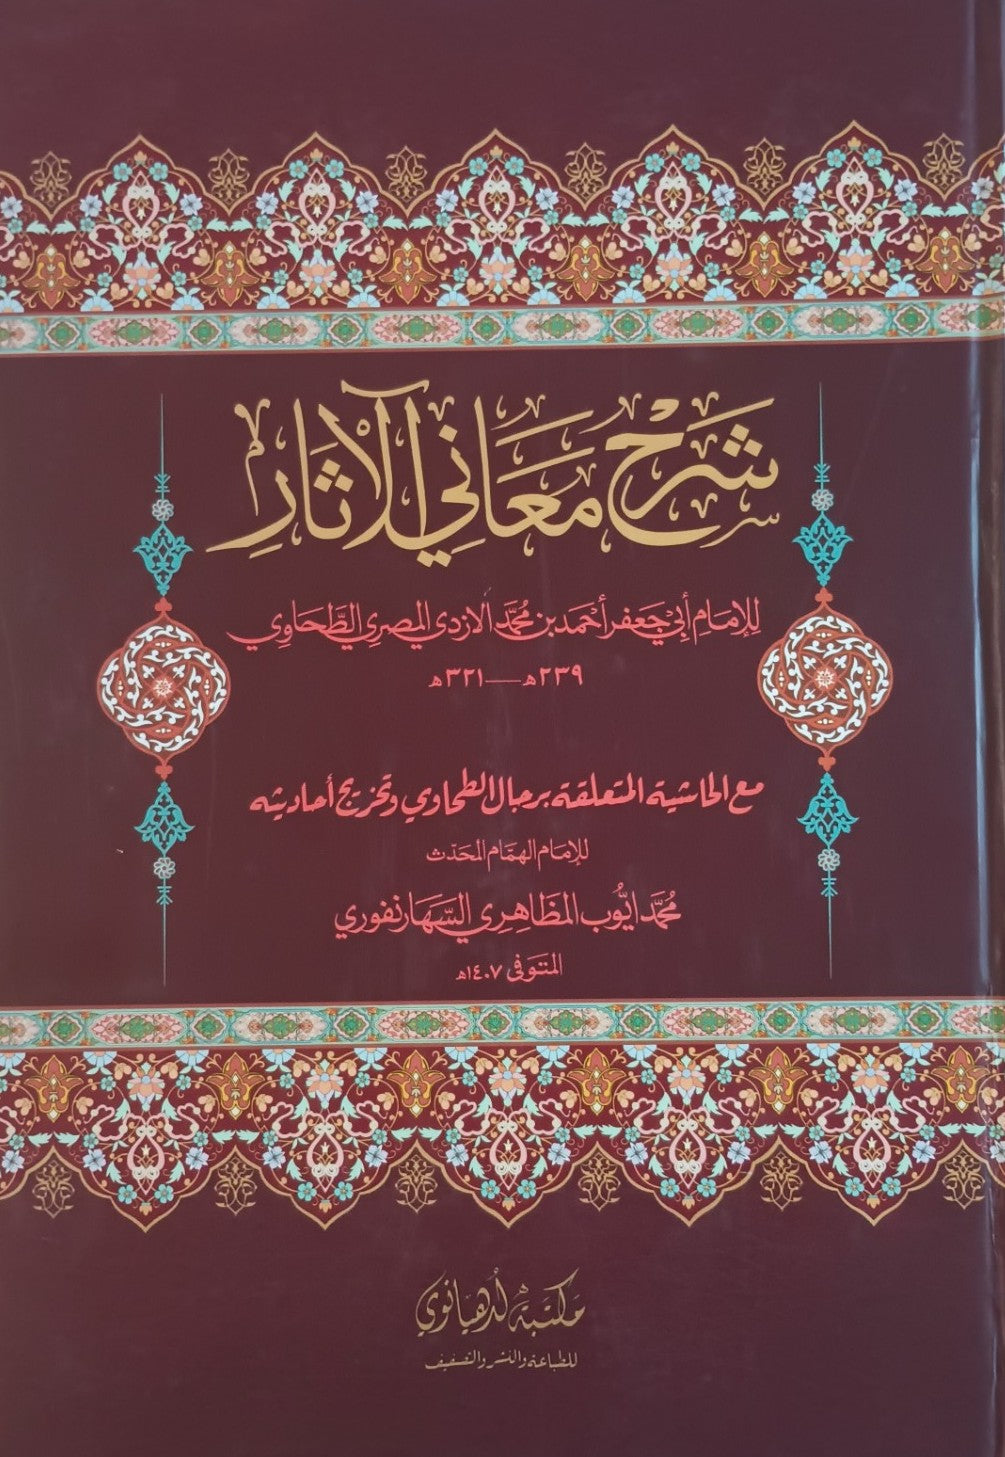 شرح معاني الآثار
للإمام أبي جعفر أحمد بن محمد الازدي المصري الطحاوي
٢٣٩هـ — ٣٢١هـ
مع الحاشية المتعلقة برجال الطحاوي وتخريج أحاديثه
للإمام الهمام المحدث
محمد ايوب المظاهري السهارنفوري
المتوفى ١٤٠٧هـ
مكتبة لدهيانوي
للطباعة والنشر والتصنيف